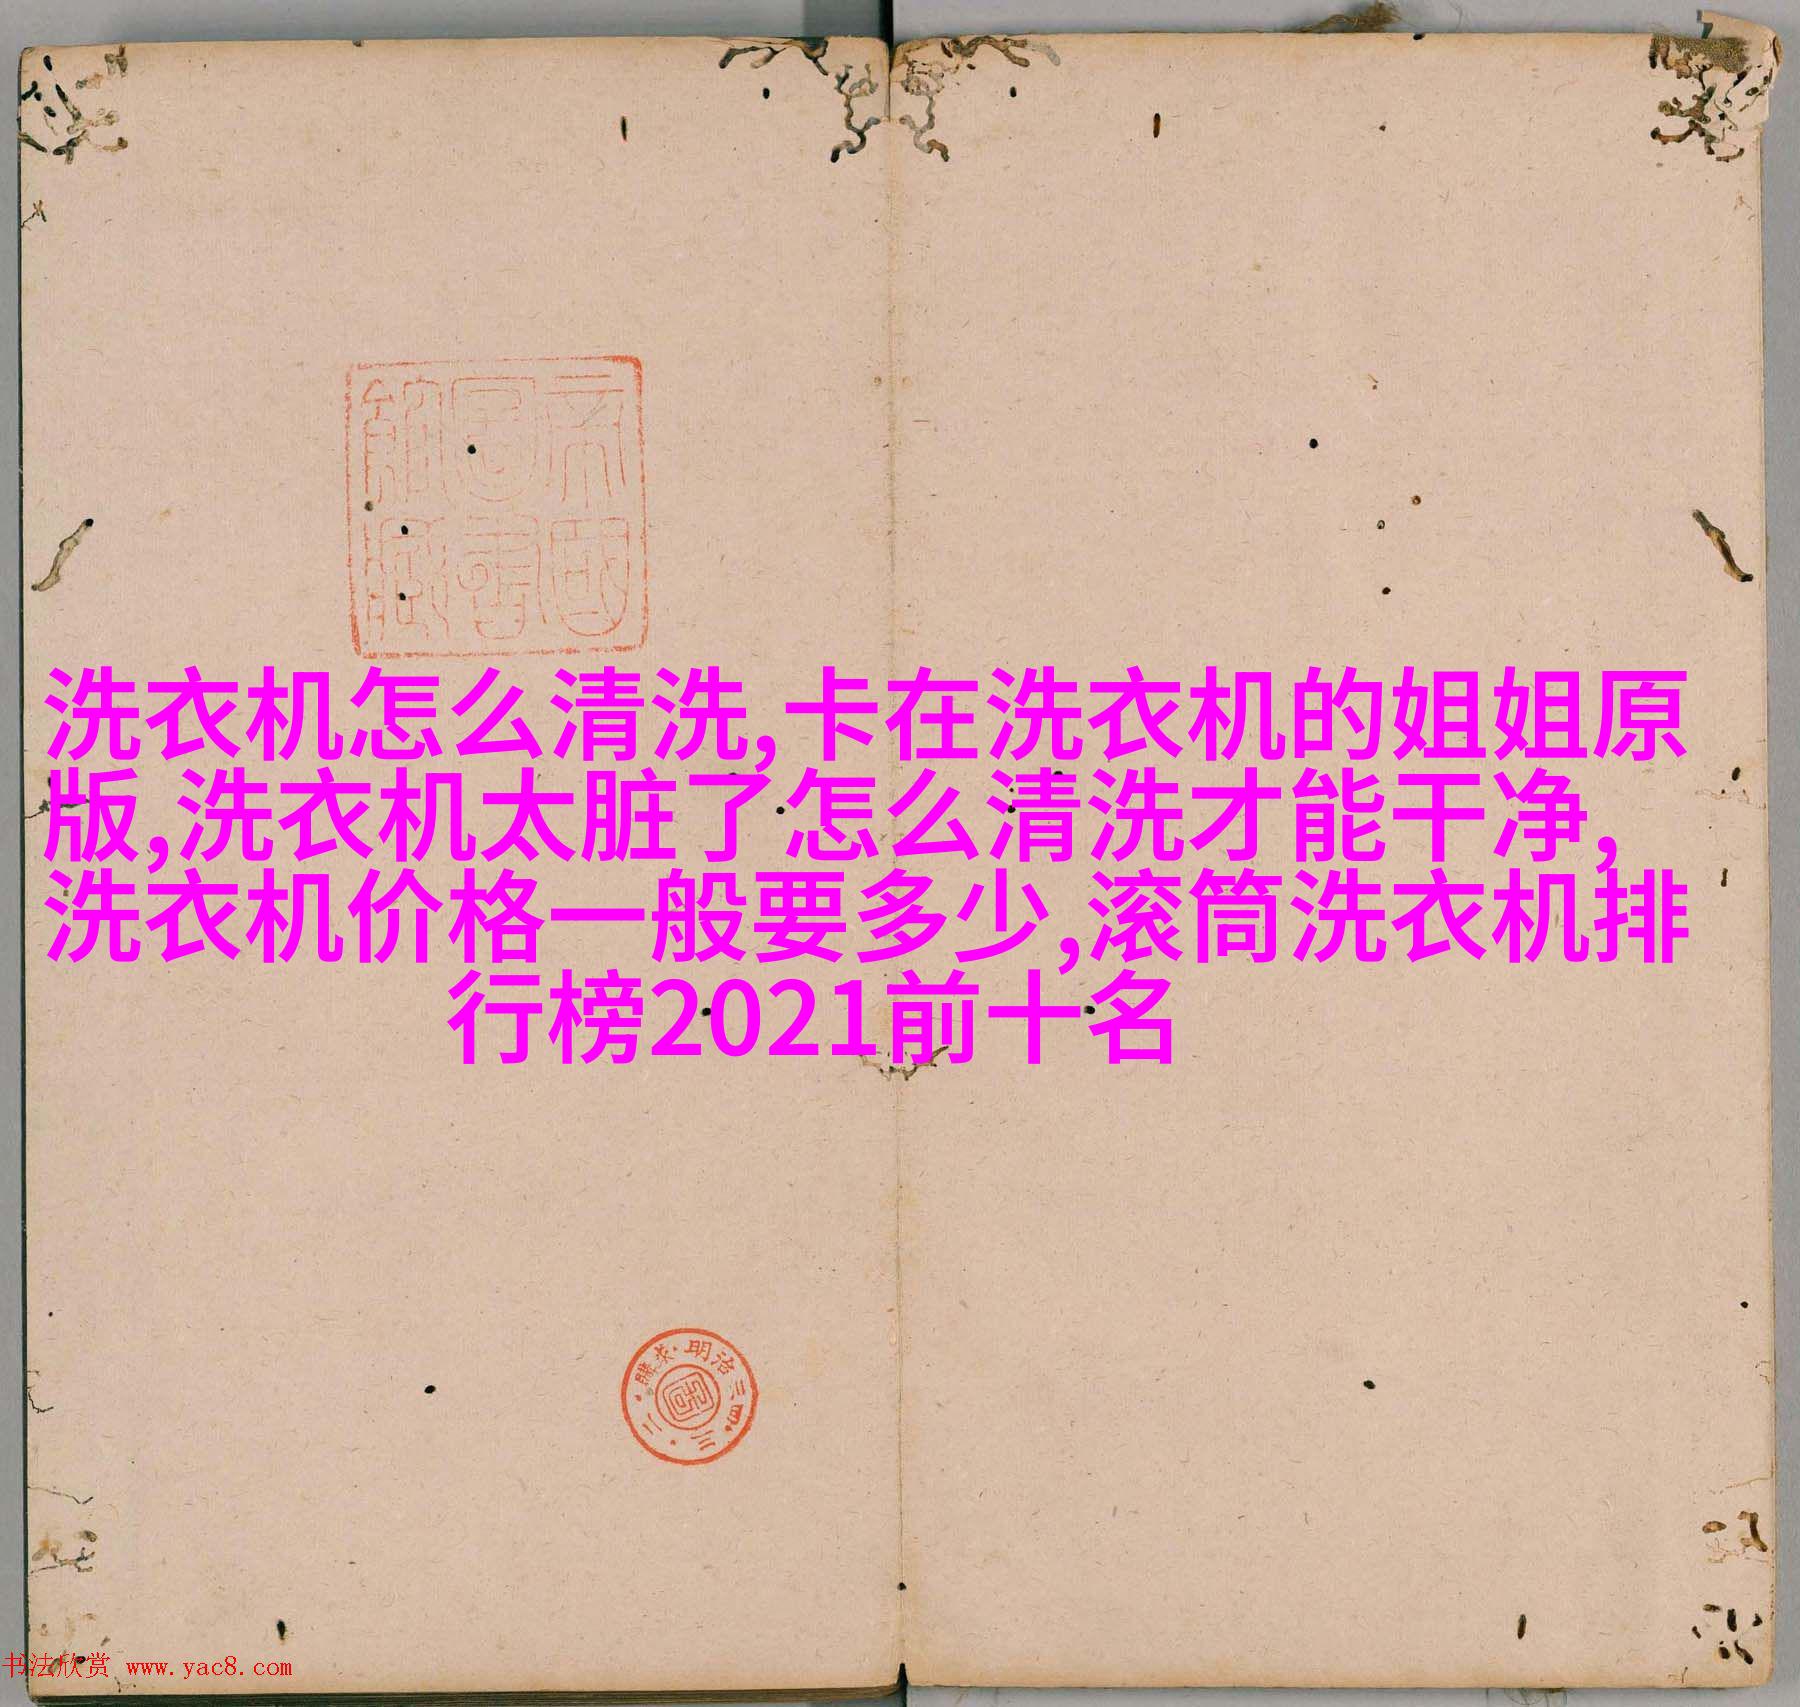 帝國
圖書
館藏
洗衣机怎么清洗,卡在洗衣机的姐姐原
版,洗衣机太脏了怎么清洗才能干净,
洗衣机价格一般要多少,滚筒洗衣机排
行榜2021前十名
明治三四・三・二・購求
书法欣赏 www.yac8.com